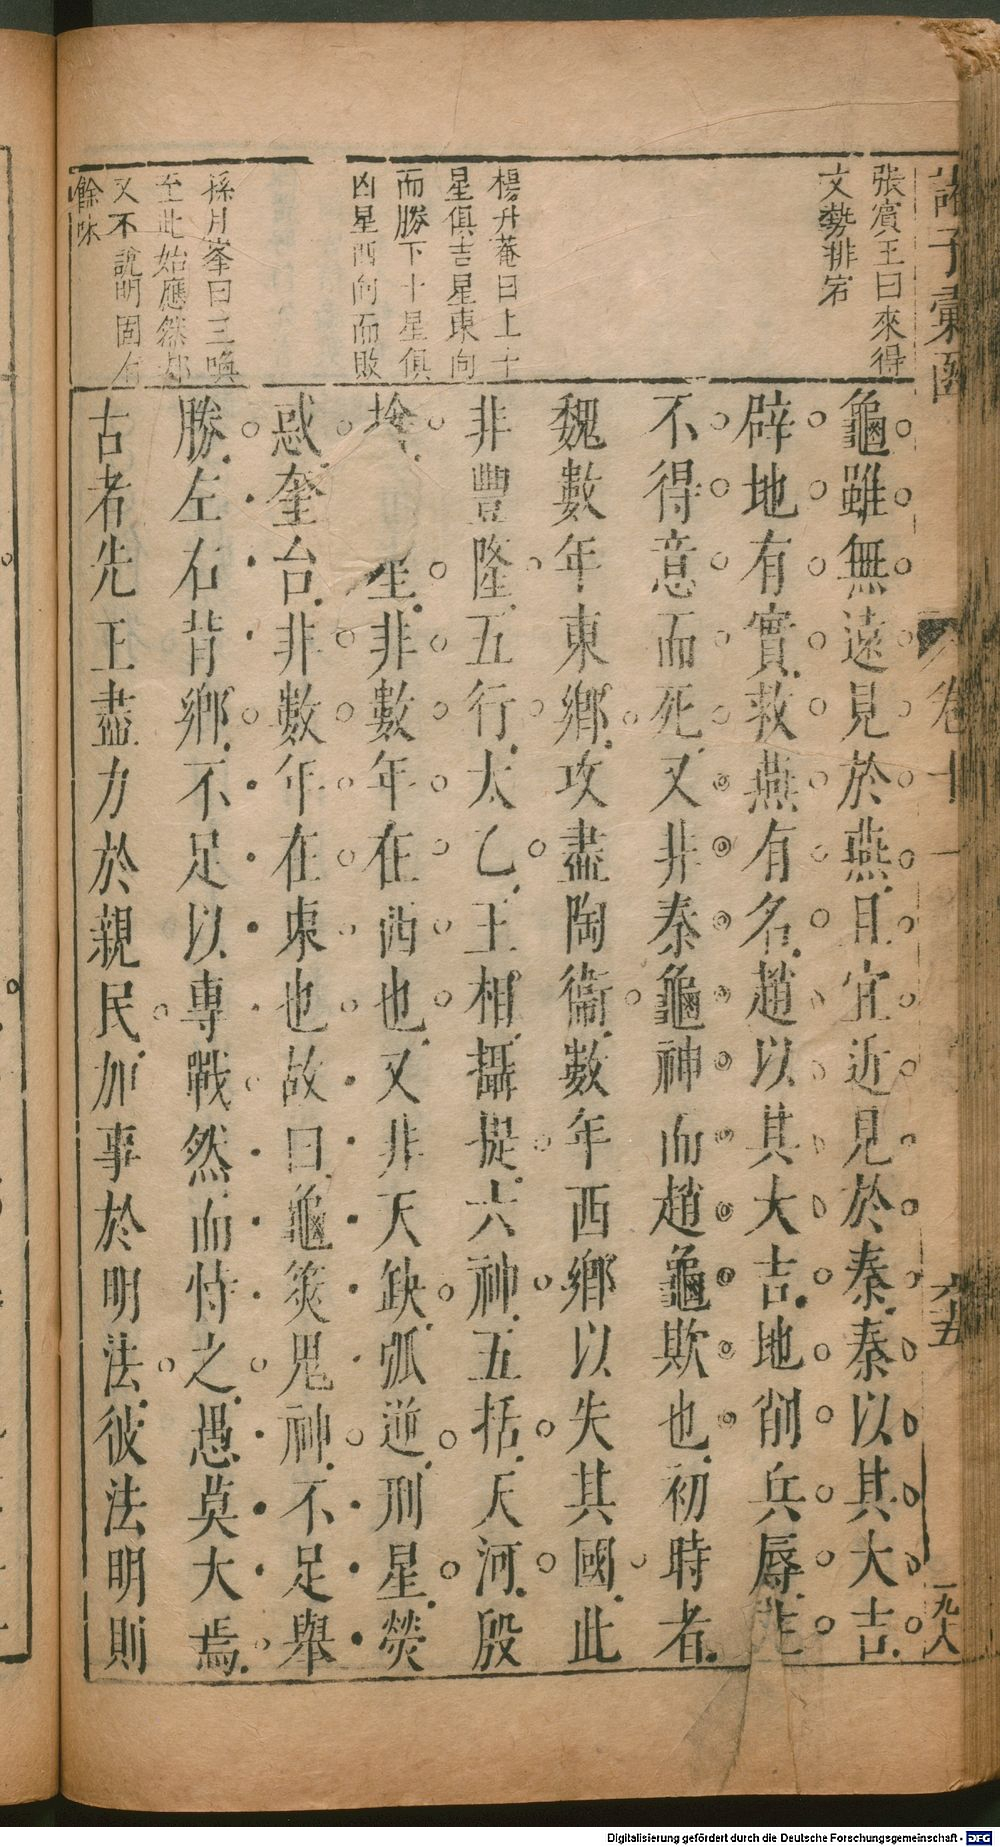 諸子彙函
卷十一
六五
一九八
張賓王曰來得
文勢排宕
楊升菴曰上十
星俱吉星東向
而勝下十星俱
凶星西向而敗
孫月峯曰三喚
至此始應然却
又不說明固有
餘味
龜雖無遠見於燕且宜近見於秦秦以其大吉
辟地有實救燕有名趙以其大吉地削兵辱
不得意而死又非秦龜神而趙龜欺也初時者
魏數年東鄉攻盡陶衞數年西鄉以失其國此
非豐隆五行太乙王相攝提六神五括天河殷
搶 星非數年在西也又非天缺弧逆刑星熒
惑奎台非數年在東也故曰龜筴鬼神不足舉
勝左右背鄉不足以專戰然而恃之愚莫大焉
古者先王盡力於親民加事於明法彼法明則
Digitalisierung gefördert durch die Deutsche Forschungsgemeinschaft - DFG